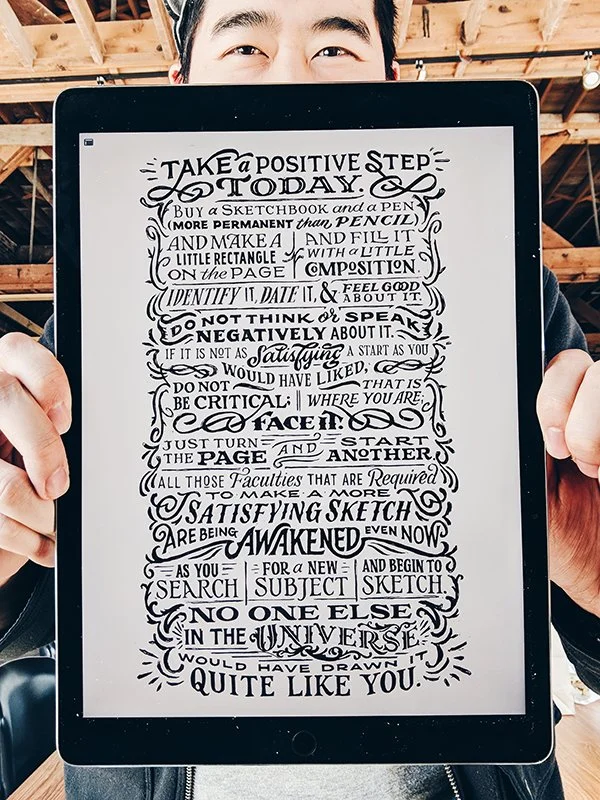 TAKE a POSITIVE STEP
TODAY.
BUY a SKETCHBOOK and a PEN
(MORE PERMANENT than PENCIL)
AND MAKE A
LITTLE RECTANGLE
ON the PAGE
AND FILL IT
WITH a LITTLE
COMPOSITION.
IDENTIFY IT, DATE IT, & FEEL GOOD
ABOUT IT.
DO NOT THINK or SPEAK
NEGATIVELY ABOUT IT.
IF IT IS NOT AS Satisfying A START AS YOU
WOULD HAVE LIKED,
DO NOT
BE CRITICAL;
THAT IS
WHERE YOU ARE;
FACE IT.
JUST TURN
THE PAGE
AND
START
ANOTHER.
ALL THOSE Faculties THAT ARE Required
TO MAKE A MORE
SATISFYING SKETCH
ARE BEING AWAKENED EVEN NOW
AS YOU
SEARCH
FOR a NEW
SUBJECT
AND BEGIN TO
SKETCH.
NO ONE ELSE
IN THE UNIVERSE
WOULD HAVE DRAWN IT
QUITE LIKE YOU.